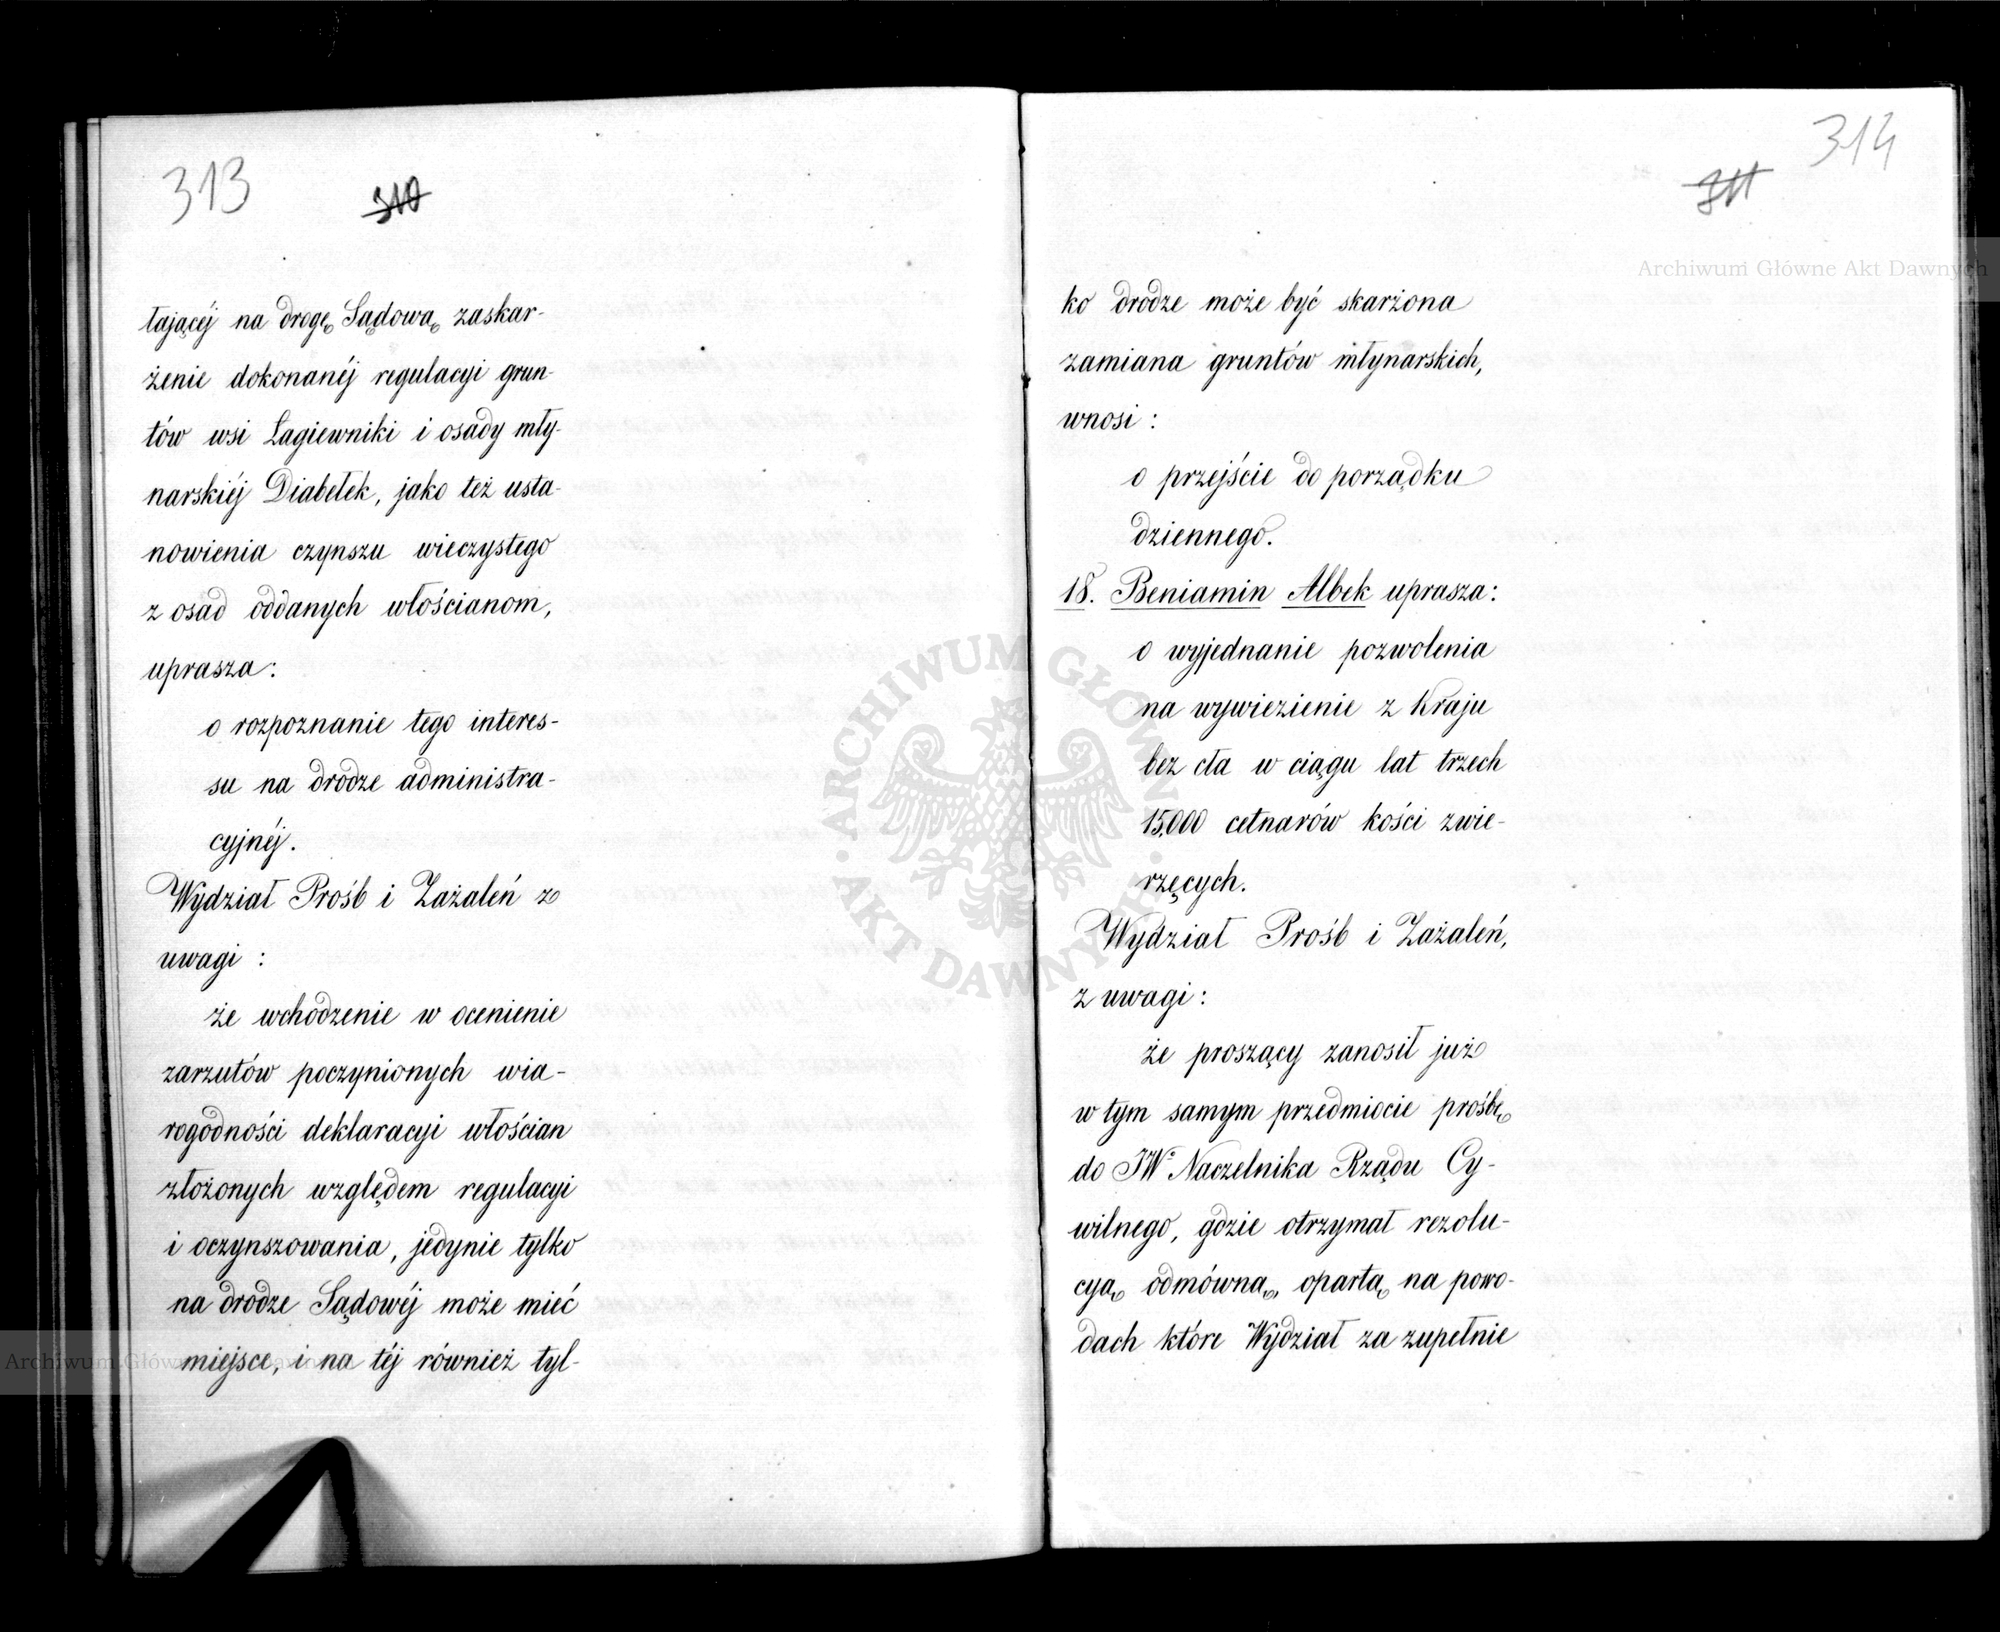 313
310
łającéj na drogę Sądową zaskar-
żenie dokonanéj regulacyi grun-
tów wsi Łagiewniki i osady mły-
narskiéj Diabełek, jako też usta-
nowienia czynszu wieczystego
z osad oddanych włościanom,
uprasza:
o rozpoznanie tego interes-
su na drodze administra-
cyjnéj.
Wydział Prośb i Zażaleń z
uwagi :
że wchodzenie w ocenienie
zarzutów poczynionych wia-
rogodności deklaracyi włościan
złożonych względem regulacyi
i oczynszowania, jedynie tylko
na drodze Sądowéj może mieć
miejsce, i na téj również tyl-
314
311
ko drodze może być skarżona
zamiana gruntów młynarskich,
wnosi :
o przejście do porządku
dziennego.
18. Beniamin Albek uprasza:
o wyjednanie pozwolenia
na wywiezienie z Kraju
bez cła w ciągu lat trzech
15,000 cetnarów kości zwie-
rzęcych.
Wydział Prośb i Zażaleń,
z uwagi :
że proszący zanosił już
w tym samym przedmiocie prośbę
do JW. Naczelnika Rządu Cy-
wilnego, gdzie otrzymał rezolu-
cyą odmówną, opartą na powo-
dach które Wydział za zupełnie
Archiwum Główne Akt Dawnych
Archiwum Główne Akt Dawnych
ARCHIWUM GŁÓWNE AKT DAWNYCH